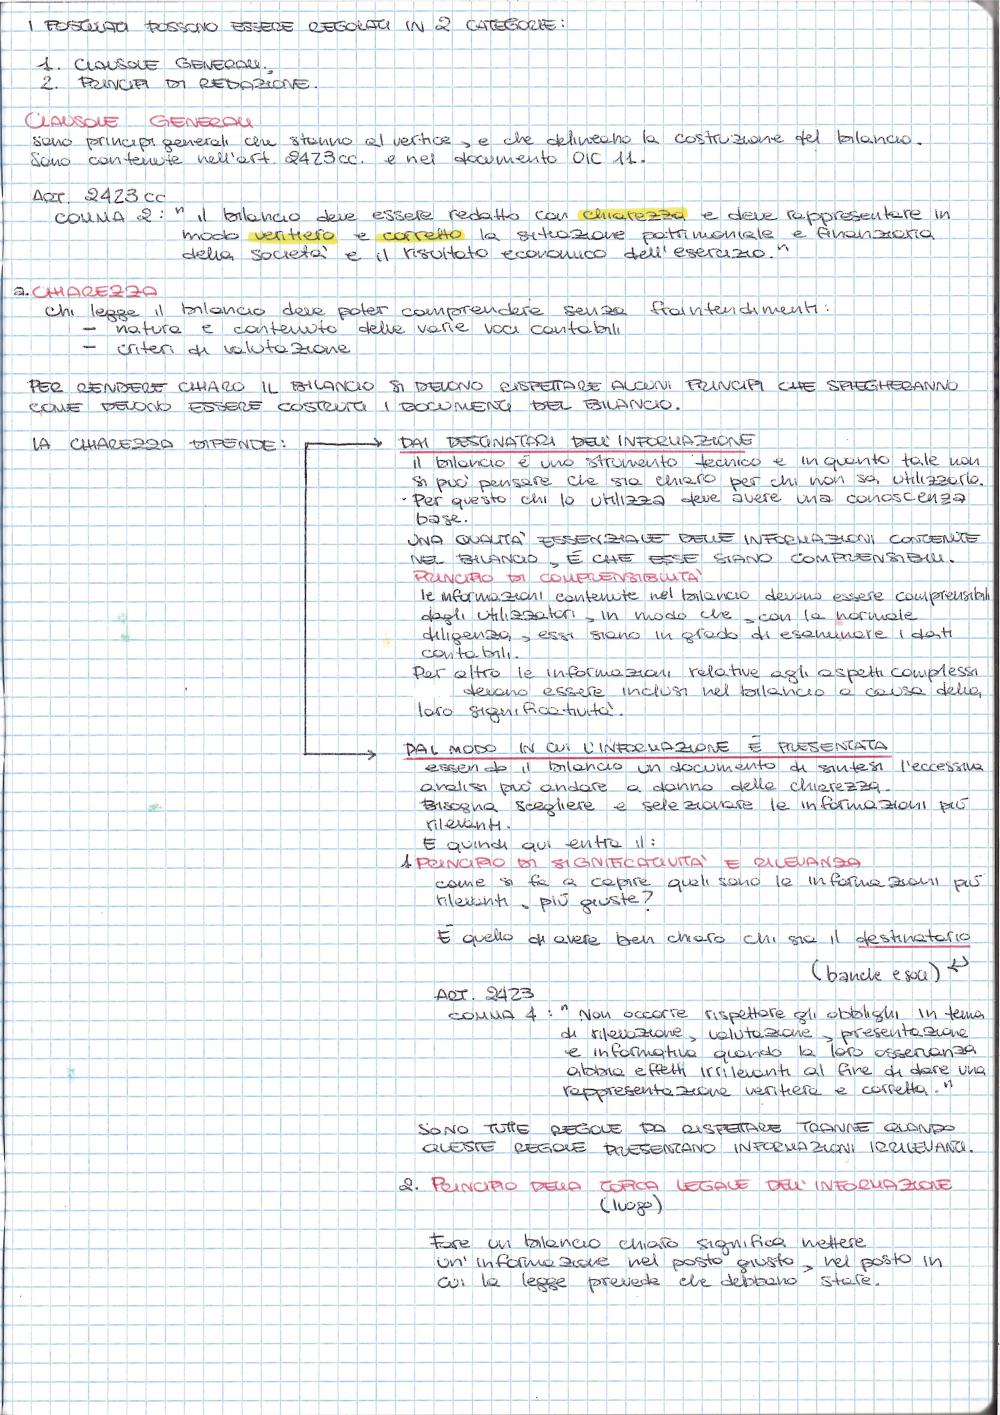 I POSTULATI POSSONO ESSERE REGOLATI IN 2 CATEGORIE:
1. CLAUSOLE GENERALI.
2. PRINCIPI DI REDAZIONE.
CLAUSOLE GENERALI
sono principi generali che stanno al vertice, e che delineano la costruzione del bilancio.
Sono contenute nell'art. 2423cc. e nel documento OIC 11.
ART. 2423 cc
COMMA 2: " il bilancio deve essere redatto con chiarezza e deve rappresentare in
modo veritiero e corretto la situazione patrimoniale e finanziaria
della società e il risultato economico dell'esercizio."
a. CHIAREZZA
chi legge il bilancio deve poter comprendere senza fraintendimenti:
– natura e contenuto delle varie voci contabili
– criteri di valutazione
PER RENDERE CHIARO IL BILANCIO SI DEVONO RISPETTARE ALCUNI PRINCIPI CHE SPIEGHERANNO
COME DEVONO ESSERE COSTRUITI I DOCUMENTI DEL BILANCIO.
LA CHIAREZZA DIPENDE: → DAI DESTINATARI DELL'INFORMAZIONE
il bilancio è uno strumento tecnico e in quanto tale non
si può pensare che sia chiaro per chi non sa utilizzarlo.
· Per questo chi lo utilizza deve avere una conoscenza
base.
UNA QUALITA' ESSENZIALE DELLE INFORMAZIONI CONTENUTE
NEL BILANCIO, È CHE ESSE SIANO COMPRENSIBILI.
PRINCIPIO DI COMPRENSIBILITA'
le informazioni contenute nel bilancio devono essere comprensibili
dagli utilizzatori, in modo che, con la normale
diligenza, essi siano in grado di esaminare i dati
contabili.
Per altro le informazioni relative agli aspetti complessi
devono essere inclusi nel bilancio a causa della
loro significatività.
→ DAL MODO IN CUI L'INFORMAZIONE È PRESENTATA
essendo il bilancio un documento di sintesi l'eccessiva
analisi può andare a danno della chiarezza.
Bisogna scegliere e selezionare le informazioni più
rilevanti.
E quindi qui entra il:
1. PRINCIPIO DI SIGNIFICATIVITA' E RILEVANZA
come si fa a capire quali sono le informazioni più
rilevanti, più giuste?
È quello di avere ben chiaro chi sia il destinatario
(banche e soci) ↵
ART. 2423
COMMA 4: " Non occorre rispettare gli obblighi in tema
di rilevazione, valutazione, presentazione
e informativa quando la loro osservanza
abbia effetti irrilevanti al fine di dare una
rappresentazione veritiera e corretta."
SONO TUTTE REGOLE DA RISPETTARE TRANNE QUANDO
QUESTE REGOLE PRESENTANO INFORMAZIONI IRRILEVANTI.
2. PRINCIPIO DELLA TOPICA LEGALE DELL'INFORMAZIONE
(luogo)
Fare un bilancio chiaro significa mettere
un'informazione nel posto giusto, nel posto in
cui la legge prevede che debbano stare.